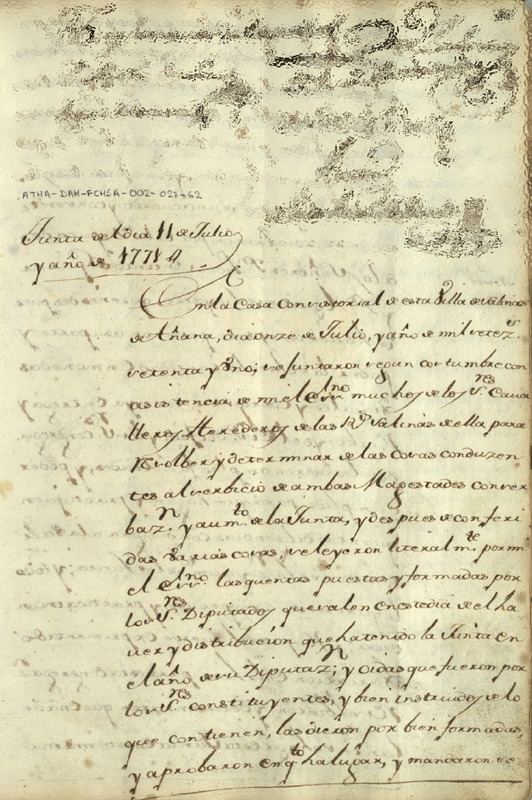 ATHA-DAH-FCHEA-002-027-62
Junta del dia 11 de Julio
y año de 1771
En la Casa Consistorial de esta Villa de Salinas
de Añana, dia onze de Julio, y año de mil setez.s
setenta y Vno; se Juntaron segun costumbre con
asistencia de mi el Ssno muchos de los S.res Cava
lleros Herederos de las R.s Salinas de ella para
Resolber y determinar de las cosas conduzen
tes al serbicio de ambas Magestades conser
baz.n y aum.to de la Junta, y despues de conferi
das Varias cosas, se leyeron literalm.te por mi
el Ssno las quentas puestas y formadas por
los S.res Diputados que salen en este dia de el ha
ver y distribución que ha tenido la Junta en
el año de su Diputaz.n; y oidas que fueron por
los S.res constituyentes, y bien instruidos de lo
que contienen, las dieron por bien formadas,
y aprobaron en q.to ha lugar, y mandaron se